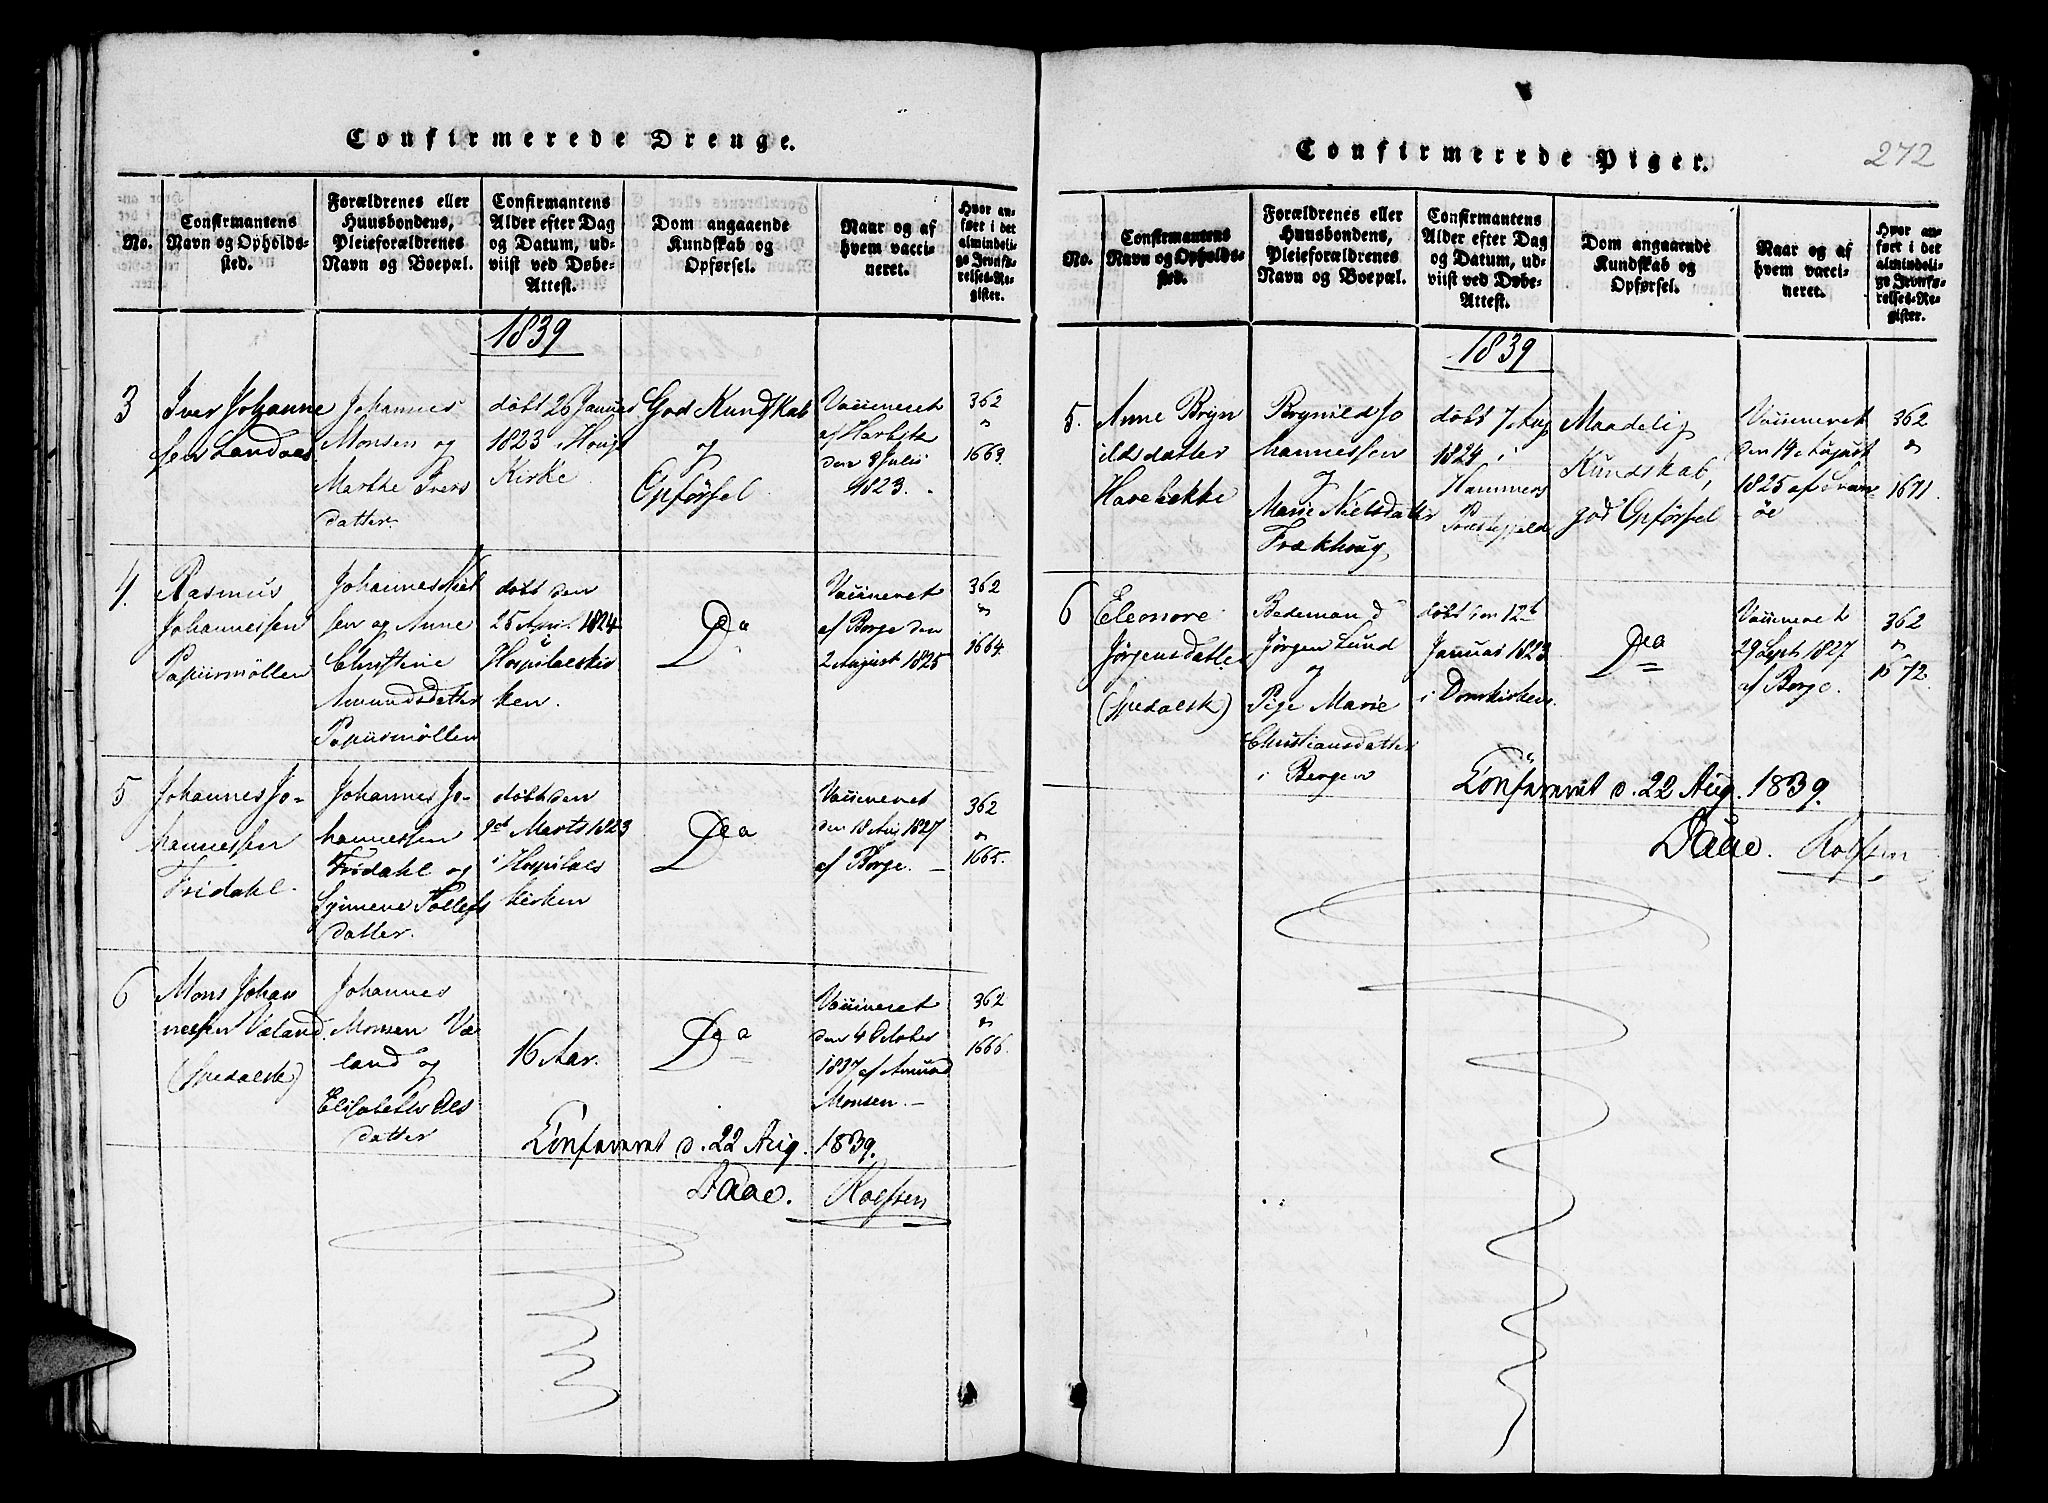 Confirmerede Drenge.
No.
Confirmantens
Navn og Opholds-
sted.
Forældrenes eller
Huusbondens,
Pleieforældrenes
Navn og Boepæl.
Confirmantens
Alder efter Dag
og Datum, ud-
viist ved Døbe-
Attest.
Dom angaaende
Kundskab og
Opførsel.
Naar og af
hvem vacci-
neret.
Hvor an-
ført i det
almindeli-
ge Jevnfø-
relses-Re-
gister.
1839
3
Iver Johanne
sen Landaas
Johannes
Monsen og
Marthe Ivers
datter
døbt 26 Januar
1823 i Houg
Kirke
God Kundskab
og
Opførsel.
Vaccineret
af
den 8 Julii
1823.
362
"
1663.
4.
Rasmus
Johannessen
Papiirmøllen
Johannes Niel
sen og Anne
Christine
Amundsdatter
Papiirmøllen
døbt den
25 April 1824
i
Hospitalskir
ken.
Do
Vaccineret
af Borge den
2 August 1825
362
"
1664.
5
Johannes Jo-
hannessen
Fridahl.
Johannes Jo-
hannessen
Fridahl og
Synneve Tollefs
datter.
døbt den
9de Marts 1823
i Hospitals
kirken
Do
Vaccineret
den 18 Aug 1827
af Borge. -
362
"
1665.
6
Mons Johan
nessen Væland
(Spedalsk)
Johannes
Monsen Væ
land og
Elisabeth Ols
datter
16 Aar.
Do
Vaccineret
den 4 October
1837 af Amund
Monsen. -
362
"
1666.
Confirmeret d. 22 Aug. 1839.
Daae. Rolfsen
Confirmerede Piger.
272
No.
Confirmantens
Navn og Opholds-
sted.
Forældrenes eller
Huusbondens,
Pleieforældrenes
Navn og Boepæl.
Confirmantens
Alder efter Dag
og Datum, ud-
viist ved Døbe-
Attest.
Dom angaaende
Kundskab og
Opførsel.
Naar og af
hvem vacci-
neret.
Hvor an-
ført i det
almindeli-
ge Jevnfø-
relses-Re-
gister.
1839
5.
Anne Bryn
ildsdatter
Havebakke
Brynild Jo
hannessen
og
Marie Nielsdatter
Frækhoug
døbt 7 Aug
1824 i
Hammers
Præstegjeld
Maadelig
Kundskab,
god Opførsel
Vaccineret
den 14 August
1825 af Svan
øe
362
"
1671.
6
Eleonore
Jørgensdatter
(Spedalsk)
Bedemand
Jørgen Lund
og
Pige Marie
Christiansdatter
i Bergen
døbt den 12t
Januar 1823
i Domkirken.
Do
Vaccineret
29 Sept 1827
af Borge.
362
"
1672.
Confirmeret d. 22 Aug. 1839.
Daae. Rolfsen